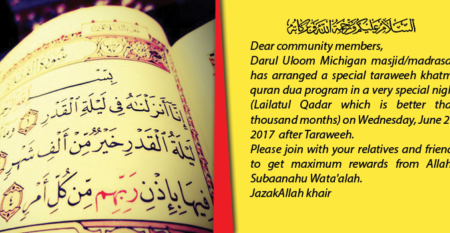 بِسْمِ
إِنَّا أَنزَلْنَاهُ فِي لَيْلَةِ الْقَدْرِ
لَيْلَةُ الْقَدْرِ خَيْرٌ مِّنْ أَلْفِ شَهْرٍ
فِيهَا بِإِذْنِ رَبِّهِم مِّن كُلِّ أَمْرٍ
السلام عليكم ورحمة الله وبركاته
Dear community members,
Darul Uloom Michigan masjid/madrasa
has arranged a special taraweeh khatm
quran dua program in a very special nigh
(Lailatul Qadar which is better tha
thousand months) on Wednesday, June 2
2017 after Taraweeh.
Please join with your relatives and friend
to get maximum rewards from Allah
Subaanahu Wata'alah.
JazakAllah khair